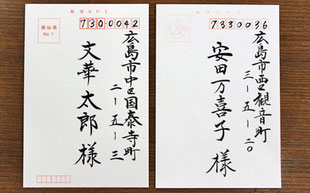 郵便はがき
730 0042
広島市中区国泰寺町
二-五-三
文華太郎様
7330036
広島市西区観音町
三-五-二〇
安田万喜子様